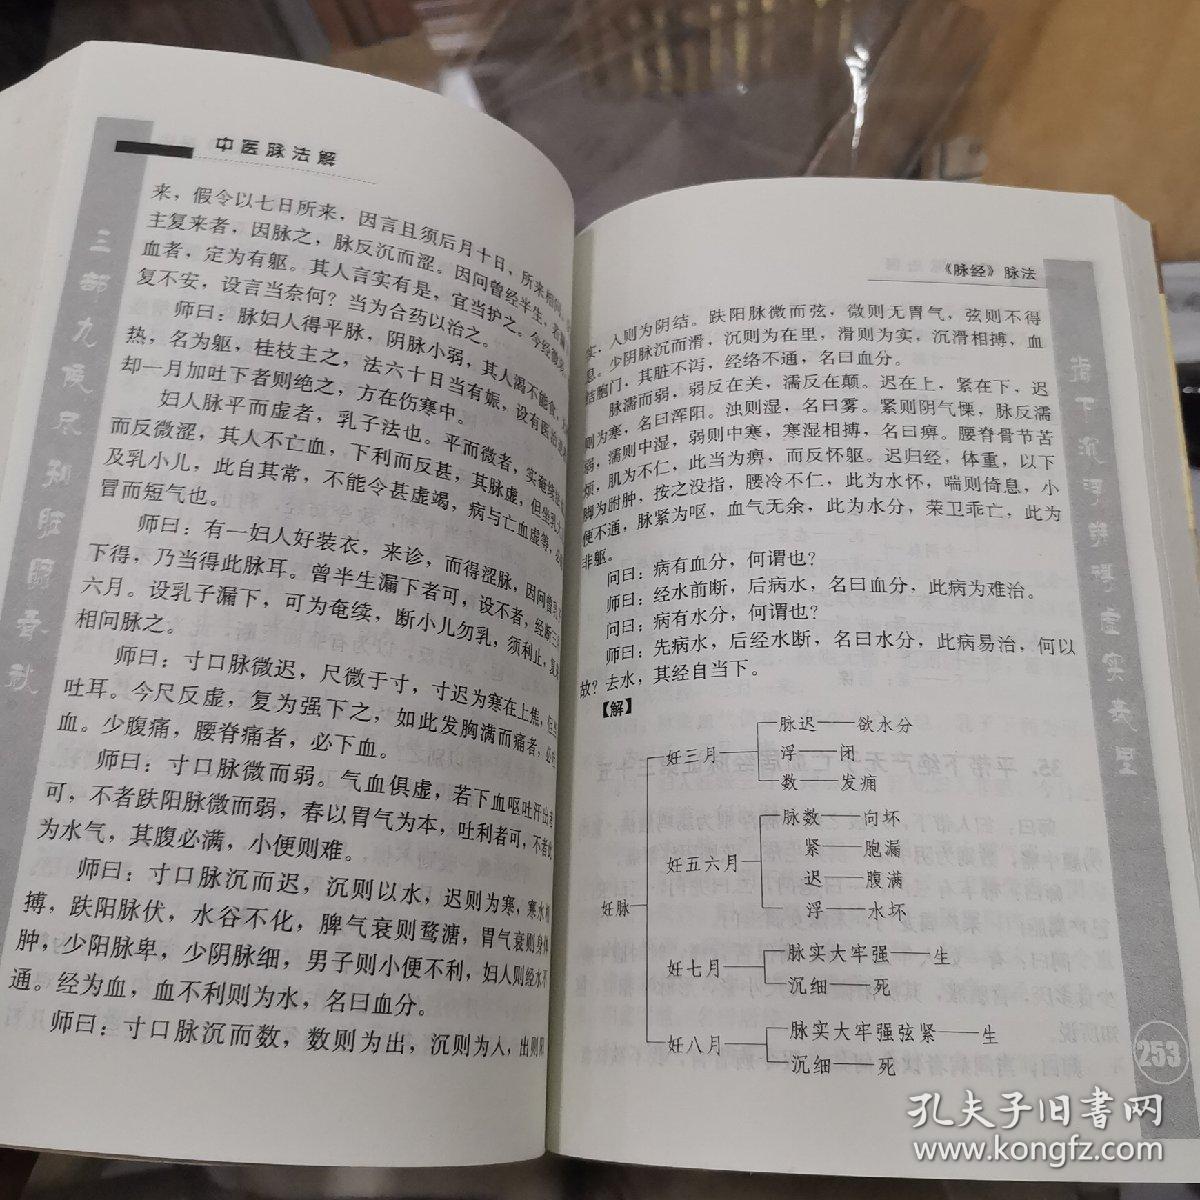 中医脉法解
来，假令以七日所来，因言且须后月十日，所来相间，
主复来者，因脉之，脉反沉而涩。因问曾经半生，若漏
血者，定为有躯。其人言实有是，宜当护之。今经
复不安，设言当奈何？当为合药以治之。
师曰：脉妇人得平脉，阴脉小弱，其人渴不能食，
热，名为躯，桂枝主之，法六十日当有娠，设有医治逆
却一月加吐下者则绝之，方在伤寒中。
妇人脉平而虚者，乳子法也。平而微者，实奄续法
而反微涩，其人不亡血，下利而反甚，其脉虚，但坐乳
及乳小儿，此自其常，不能令甚虚竭，病与亡血虚等，
冒而短气也。
师曰：有一妇人好装衣，来诊，而得涩脉，因问曾
下得，乃当得此脉耳。曾半生漏下者可，设不者，经断
六月。设乳子漏下，可为奄续，断小儿勿乳，须利止，复
相问脉之。
师曰：寸口脉微迟，尺微于寸，寸迟为寒在上焦，但
吐耳。今尺反虚，复为强下之，如此发胸满而痛者，必
血。少腹痛，腰脊痛者，必下血。
师曰：寸口脉微而弱。气血俱虚，若下血呕吐汗出者
可，不者趺阳脉微而弱，春以胃气为本，吐利者可，不者
为水气，其腹必满，小便则难。
师曰：寸口脉沉而迟，沉则以水，迟则为寒，寒水
搏，趺阳脉伏，水谷不化，脾气衰则鹜溏，胃气衰则身体
肿，少阳脉卑，少阴脉细，男子则小便不利，妇人则经水不
通。经为血，血不利则为水，名曰血分。
师曰：寸口脉沉而数，数则为出，沉则为人，出则
三部九候
《脉经》脉法
实，人则为阴结。趺阳脉微而弦，微则无胃气，弦则不得
息。少阴脉沉而滑，沉则为在里，滑则为实，沉滑相搏，血
结胞门，其脏不泻，经络不通，名曰血分。
脉濡而弱，弱反在关，濡反在颠。迟在上，紧在下，迟
则为寒，名曰浑阳。浊则湿，名曰雾。紧则阴气慄，脉反濡
弱，濡则中湿，弱则中寒，寒湿相搏，名曰痹。腰脊骨节苦
烦，肌为不仁，此当为痹，而反怀躯。迟归经，体重，以下
脚为胕肿，按之没指，腰冷不仁，此为水怀，喘则倚息，小
便不通，脉紧为呕，血气无余，此为水分，荣卫乖亡，此为
非躯。
问曰：病有血分，何谓也？
师曰：经水前断，后病水，名曰血分，此病为难治。
问曰：病有水分，何谓也？
师曰：先病水，后经水断，名曰水分，此病易治，何以
故？去水，其经自当下。
【解】
妊脉
妊三月
脉迟——欲水分
浮——闭
数——发痈
妊五六月
脉数——向坏
紧——胞漏
迟——腹满
浮——水坏
妊七月
脉实大牢强——生
沉细——死
妊八月
脉实大牢强弦紧——生
沉细——死
指下沉浮
虚实表里
253
孔夫子旧书网
www.kongfz.com